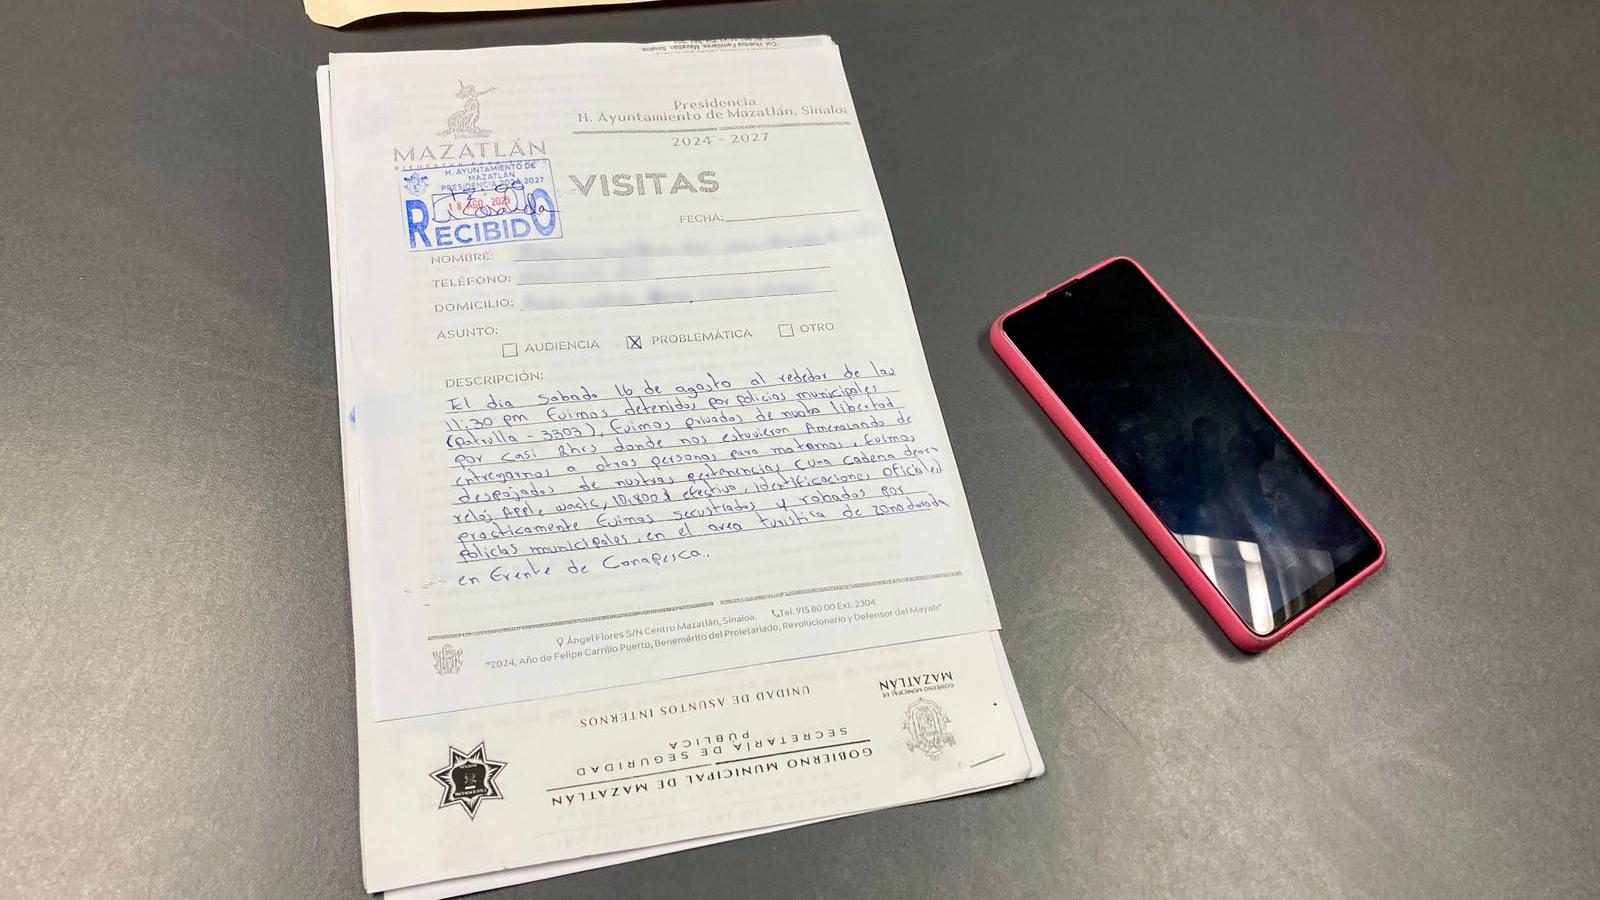 Col. Huertos Familiares, Mazatlán, Sinaloa
Presidencia
H. Ayuntamiento de Mazatlán, Sinaloa
2024 - 2027
MAZATLÁN
H. AYUNTAMIENTO DE
MAZATLÁN
PRESIDENCIA 2024-2027
18 AGO 2025
RECIBIDO
VISITAS
FECHA:
NOMBRE:
TELÉFONO:
DOMICILIO:
ASUNTO:
AUDIENCIA
X PROBLEMÁTICA
OTRO
DESCRIPCIÓN:
El dia sabado 16 de agosto al rededor de las
11:30 pm Fuimos detenidos por policias municipales
(patrulla - 3303), Fuimos privados de nuestra libertad
por casi 2hrs donde nos estuvieron Amenazando de
entregarnos a otras personas para matarnos, fuimos
despojados de nuestras pertenencias (una cadena de oro
reloj Apple, 10,800$ efectivo, identificaciones oficiales
practicamente Fuimos secustrados y robados por
policias municipales, en el area turistica de zona dorada
en frente de Conapesca.
Ángel Flores S/N Centro Mazatlán, Sinaloa. Tel. 915 80 00 Ext. 2304
"2024, Año de Felipe Carrillo Puerto, Benemérito del Proletariado, Revolucionario y Defensor del Mayab"
GOBIERNO MUNICIPAL DE MAZATLÁN
SECRETARÍA DE SEGURIDAD
PÚBLICA
UNIDAD DE ASUNTOS INTERNOS
GOBIERNO MUNICIPAL DE
MAZATLÁN